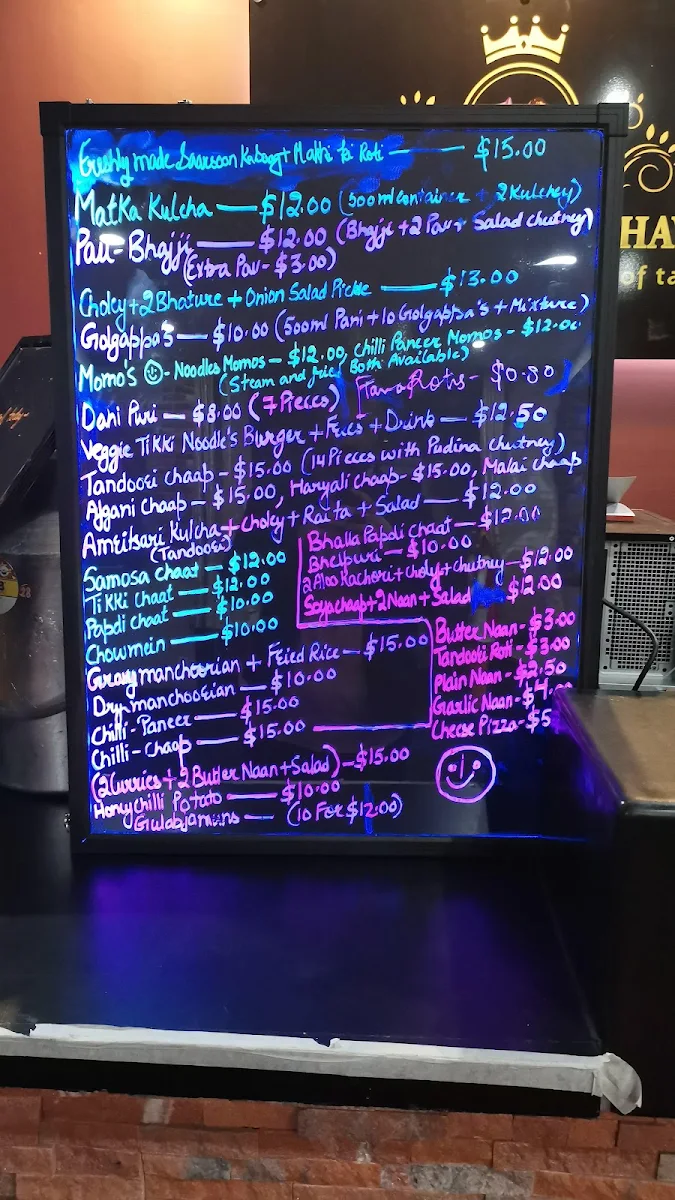 Freshly made Saarsoon Ka saag + Makki ki Roti — $15.00
Matka Kulcha — $12.00 (500ml container + 2 Kulchey)
Pau-Bhajji — $12.00 (Bhajji + 2 Pau + Salad chutney)
(Extra Pau - $3.00)
Choley + 2 Bhature + Onion Salad Pickle — $13.00
Golgappa's — $10.00 (500ml Pani + 10 Golgappa's + Mixture)
Momo's - Noodles Momos — $12.00, Chilli Paneer Momos - $12.00
(Steam and fried Both Available)
Dahi Puri — $8.00 (7 Pieces)
- $0.80
Veggie Tikki Noodle's Burger + Fries + Drink — $12.50
Tandoori chaap - $15.00 (14 Pieces with Pudina chutney)
Afgani Chaap — $15.00, Haryali chaap - $15.00, Malai chaap
Amritsari Kulcha + Choley + Raita + Salad — $12.00
(Tandoori)
Bhalla Papdi chaat — $12.00
Bhelpuri — $10.00
2 Aloo Kachori + choley + chutney — $12.00
Soya chaap + 2 Naan + Salad $12.00
Samosa chaat — $12.00
Tikki chaat — $12.00
Papdi chaat — $10.00
Chowmein — $10.00
Gravy manchoorian + Fried Rice — $15.00
Dry manchoorian — $10.00
Chilli-Paneer — $15.00
Chilli-Chaap — $15.00
Butter Naan - $3.00
Tandoori Roti - $3.00
Plain Naan - $2.50
Garlic Naan - $4.00
Cheese Pizza - $5
(2 Curries + 2 Butter Naan + Salad) — $15.00
Honey Chilli Potato — $10.00
Gulabjamuns — (10 For $12.00)
HAY
of ta